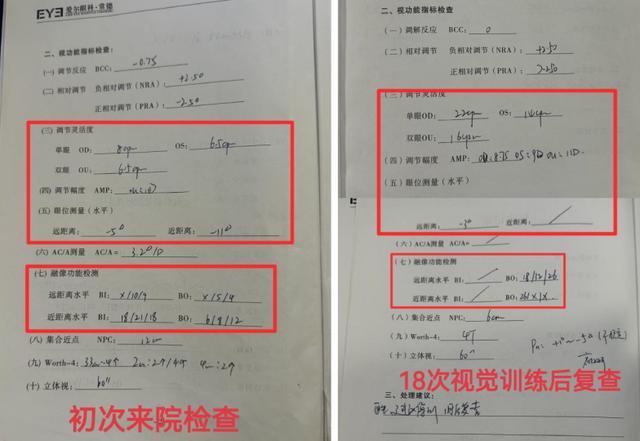 EYE 爱尔眼科·常德
二、视功能指标检查:
(一) 调节反应 BCC: -0.75
(二) 相对调节 负相对调节(NRA): +2.50
正相对调节(PRA): -2.50
(三) 调节灵活度
单眼 OD: 8cpm OS: 6.5cpm
双眼 OU: 6.5cpm
(四) 调节幅度 AMP:
(五) 眼位测量(水平)
远距离: -5△ 近距离: -11△
(六) AC/A测量 AC/A= 3.2△/D
(七) 融像功能检测
远距离水平 BI: x/10/9 BO: x/5/4
近距离水平 BI: 18/21/18 BO: 6/8/12
(八) 集合近点 NPC: 12cm
(九) Worth-4: 33cm
(十) 立体视: 60''
初次来院检查
二、视功能指标检查:
(一) 调解反应 BCC: 0
(二) 相对调节 负相对调节(NRA): +2.50
正相对调节(PRA): -2.50
(三) 调节灵活度
单眼OD: 22cpm OS: 14cpm
双眼OU: 16cpm
(四) 调节幅度 AMP: OD:8.75 OS:9D OU:11D
(五) 眼位测量(水平)
远距离: -3△ 近距离:
(六) AC/A测量 AC/A=
(七) 融像功能检测
远距离水平 BI: BO: 18/12/26
近距离水平 BI: BO: 26/x/x
(八) 集合近点 NPC: 6cm
(九) Worth-4: 4T
(十) 立体视: 60''
18次视觉训练后复查
三、处理建议: